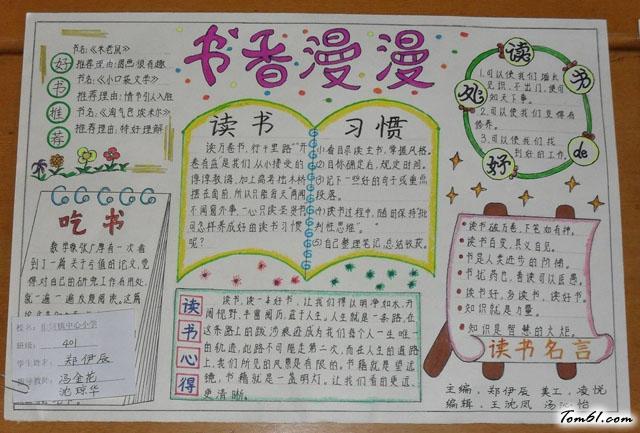 书香漫漫
好书推荐
书名:《木老鼠》
推荐理由:圆巴很有趣
书名:《小口袋文学》
推荐理由:情节引人胜
书名:《淘气包埃米尔》
推荐理由:特好理解
读书
习惯
读万卷书,行千里路"开
卷有益是我们从小接受的
谆谆教诲,加上高考独木桥
摆在面前,所以只能每天两闻
不闻窗外事,一心只读圣贤书
何怎样养成好的读书习惯
呢?
(1)看目录读主书,掌握风格。
(2)目标确定后,规定时间。
(3)记下一些好的句子或重点
段落。
(4)读书过程中,随时保持"批
判性思维"。
(5)自己整理笔记,总结收获。
读书de好处
1.可以使我们增长
见识,不出门,便可
知天下事。
2.可以使我们变得有
修养。
3.可以使我们找
到好的工作。
吃书
数学家张广厚有一次看
到了一篇关于亏值的论文,觉
得对自己的研究工作有用处,
就一遍一遍反复阅读。这篇
校名:
中心小学
班级: 401
学生姓名: 郑伊辰
指导教师: 冯金花
沈琼华
读书心得
读书,读一本好书,让我们得以明净如水,开
阔视野,丰富阅历,益于人生。人生就是一条路,在
这条路上的跋涉痕迹成为我们每个人一生唯一
的轨迹,此路不可能走第二次,而在人生的道路
上,我们所见的风景是有限的。书籍就是望远
镜,书籍就是一盏明灯。让我们看的更远、
更清晰。
读书破万卷,下笔如有神。
读书百变,其义自见。
书是人类进步的阶梯。
书犹药也,善读可以医愚。
读书好,多读书,读好书。
知识就是力量。
知识是智慧的火炬。
读书名言
主编:郑伊辰 美工:凌悦
编辑:王沈凤 汤 怡
Tom61.com